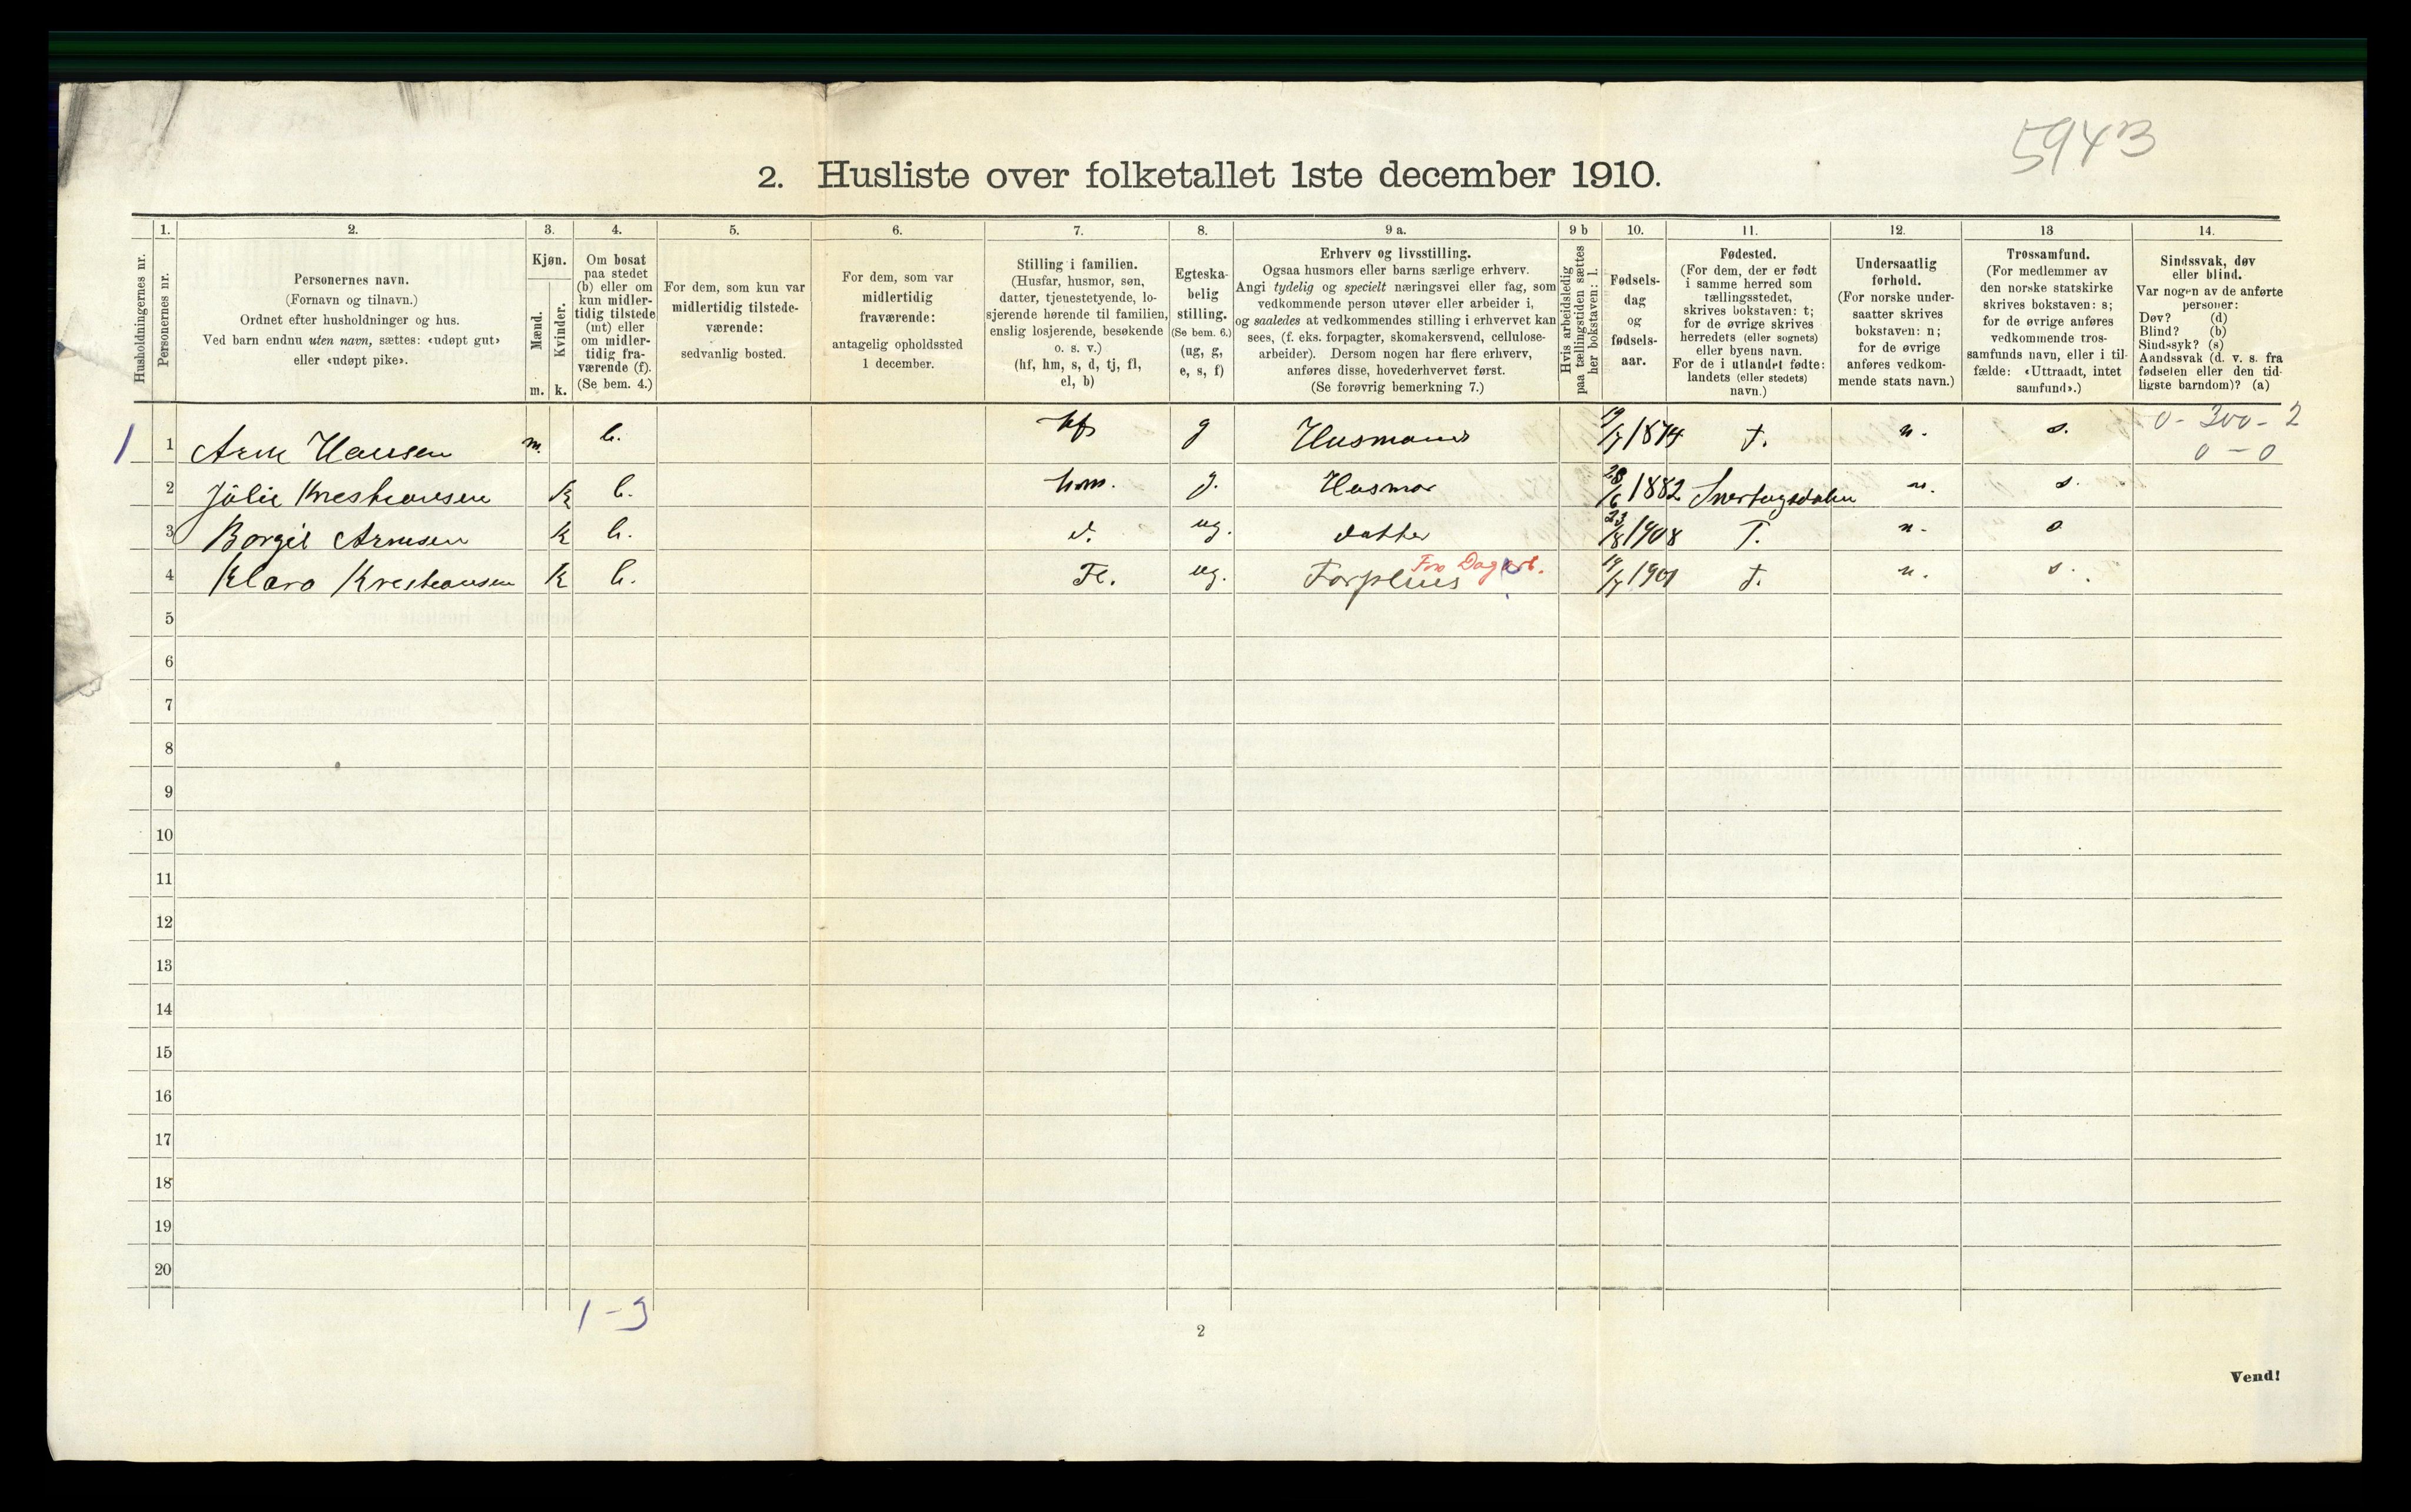 5943
2. Husliste over folketallet 1ste december 1910.
Husholdningernes nr.
1.
Personernes nr.
2.
Personernes navn.
(Fornavn og tilnavn.)
Ordnet efter husholdninger og hus.
Ved barn endnu uten navn, sættes: «udøpt gut»
eller «udøpt pike».
3.
Kjøn.
Mænd.
Kvinder.
m. k.
4.
Om bosat
paa stedet
(b) eller om
kun midler-
tidig tilstede
(mt) eller
om midler-
tidig fra-
værende (f).
(Se bem. 4.)
5.
For dem, som kun var
midlertidig tilstede-
værende:
sedvanlig bosted.
6.
For dem, som var
midlertidig
fraværende:
antagelig opholdssted
1 december.
7.
Stilling i familien.
(Husfar, husmor, søn,
datter, tjenestetyende, lo-
sjerende hørende til familien,
enslig losjerende, besøkende
o. s. v.)
(hf, hm, s, d, tj, fl,
el, b)
8.
Egteska-
belig
stilling.
(Se bem. 6.)
(ug, g,
e, s, f)
9 a.
Erhverv og livsstilling.
Ogsaa husmors eller barns særlige erhverv.
Angi tydelig og specielt næringsvei eller fag, som
vedkommende person utøver eller arbeider i,
og saaledes at vedkommendes stilling i erhvervet kan
sees, (f. eks. forpagter, skomakersvend, cellulose-
arbeider). Dersom nogen har flere erhverv,
anføres disse, hovederhvervet først.
(Se forøvrig bemerkning 7.)
9 b
Hvis arbeidsledig
paa tællingstiden sættes
her bokstaven: l.
10.
Fødsels-
dag
og
fødsels-
aar.
11.
Fødested.
(For dem, der er født
i samme herred som
tællingsstedet,
skrives bokstaven: t;
for de øvrige skrives
herredets (eller sognets)
eller byens navn.
For de i utlandet fødte:
landets (eller stedets)
navn.)
12.
Undersaatlig
forhold.
(For norske under-
saatter skrives
bokstaven: n;
for de øvrige
anføres vedkom-
mende stats navn.)
13
Trossamfund.
(For medlemmer av
den norske statskirke
skrives bokstaven: s;
for de øvrige anføres
vedkommende tros-
samfunds navn, eller i til-
fælde: «Uttraadt, intet
samfund».)
14.
Sindssvak, døv
eller blind.
Var nogen av de anførte
personer:
Døv? (d)
Blind? (b)
Sindssyk? (s)
Aandssvak (d. v. s. fra
fødselen eller den tid-
ligste barndom)? (a)
1 1 Arne Hansen m. b. hf g Husmand 19/7 1874 t. n. s. 0 - 300 - 2
0 - 0
2 Julie Kresteansen k b. hm. g. Husmor 28/6 1882 n. s.
3 Borgil Arnesen k b. d. ug. datter 23/8 1908 T. n. s
4 Klara Kresteansen k b. Fl. ug. Forpleies 19/7 1901 t. n. s.
Dagarb.
5
6
7
8
9
10
11
12
13
14
15
16
17
18
19
20
1 - 3
2
Vend!